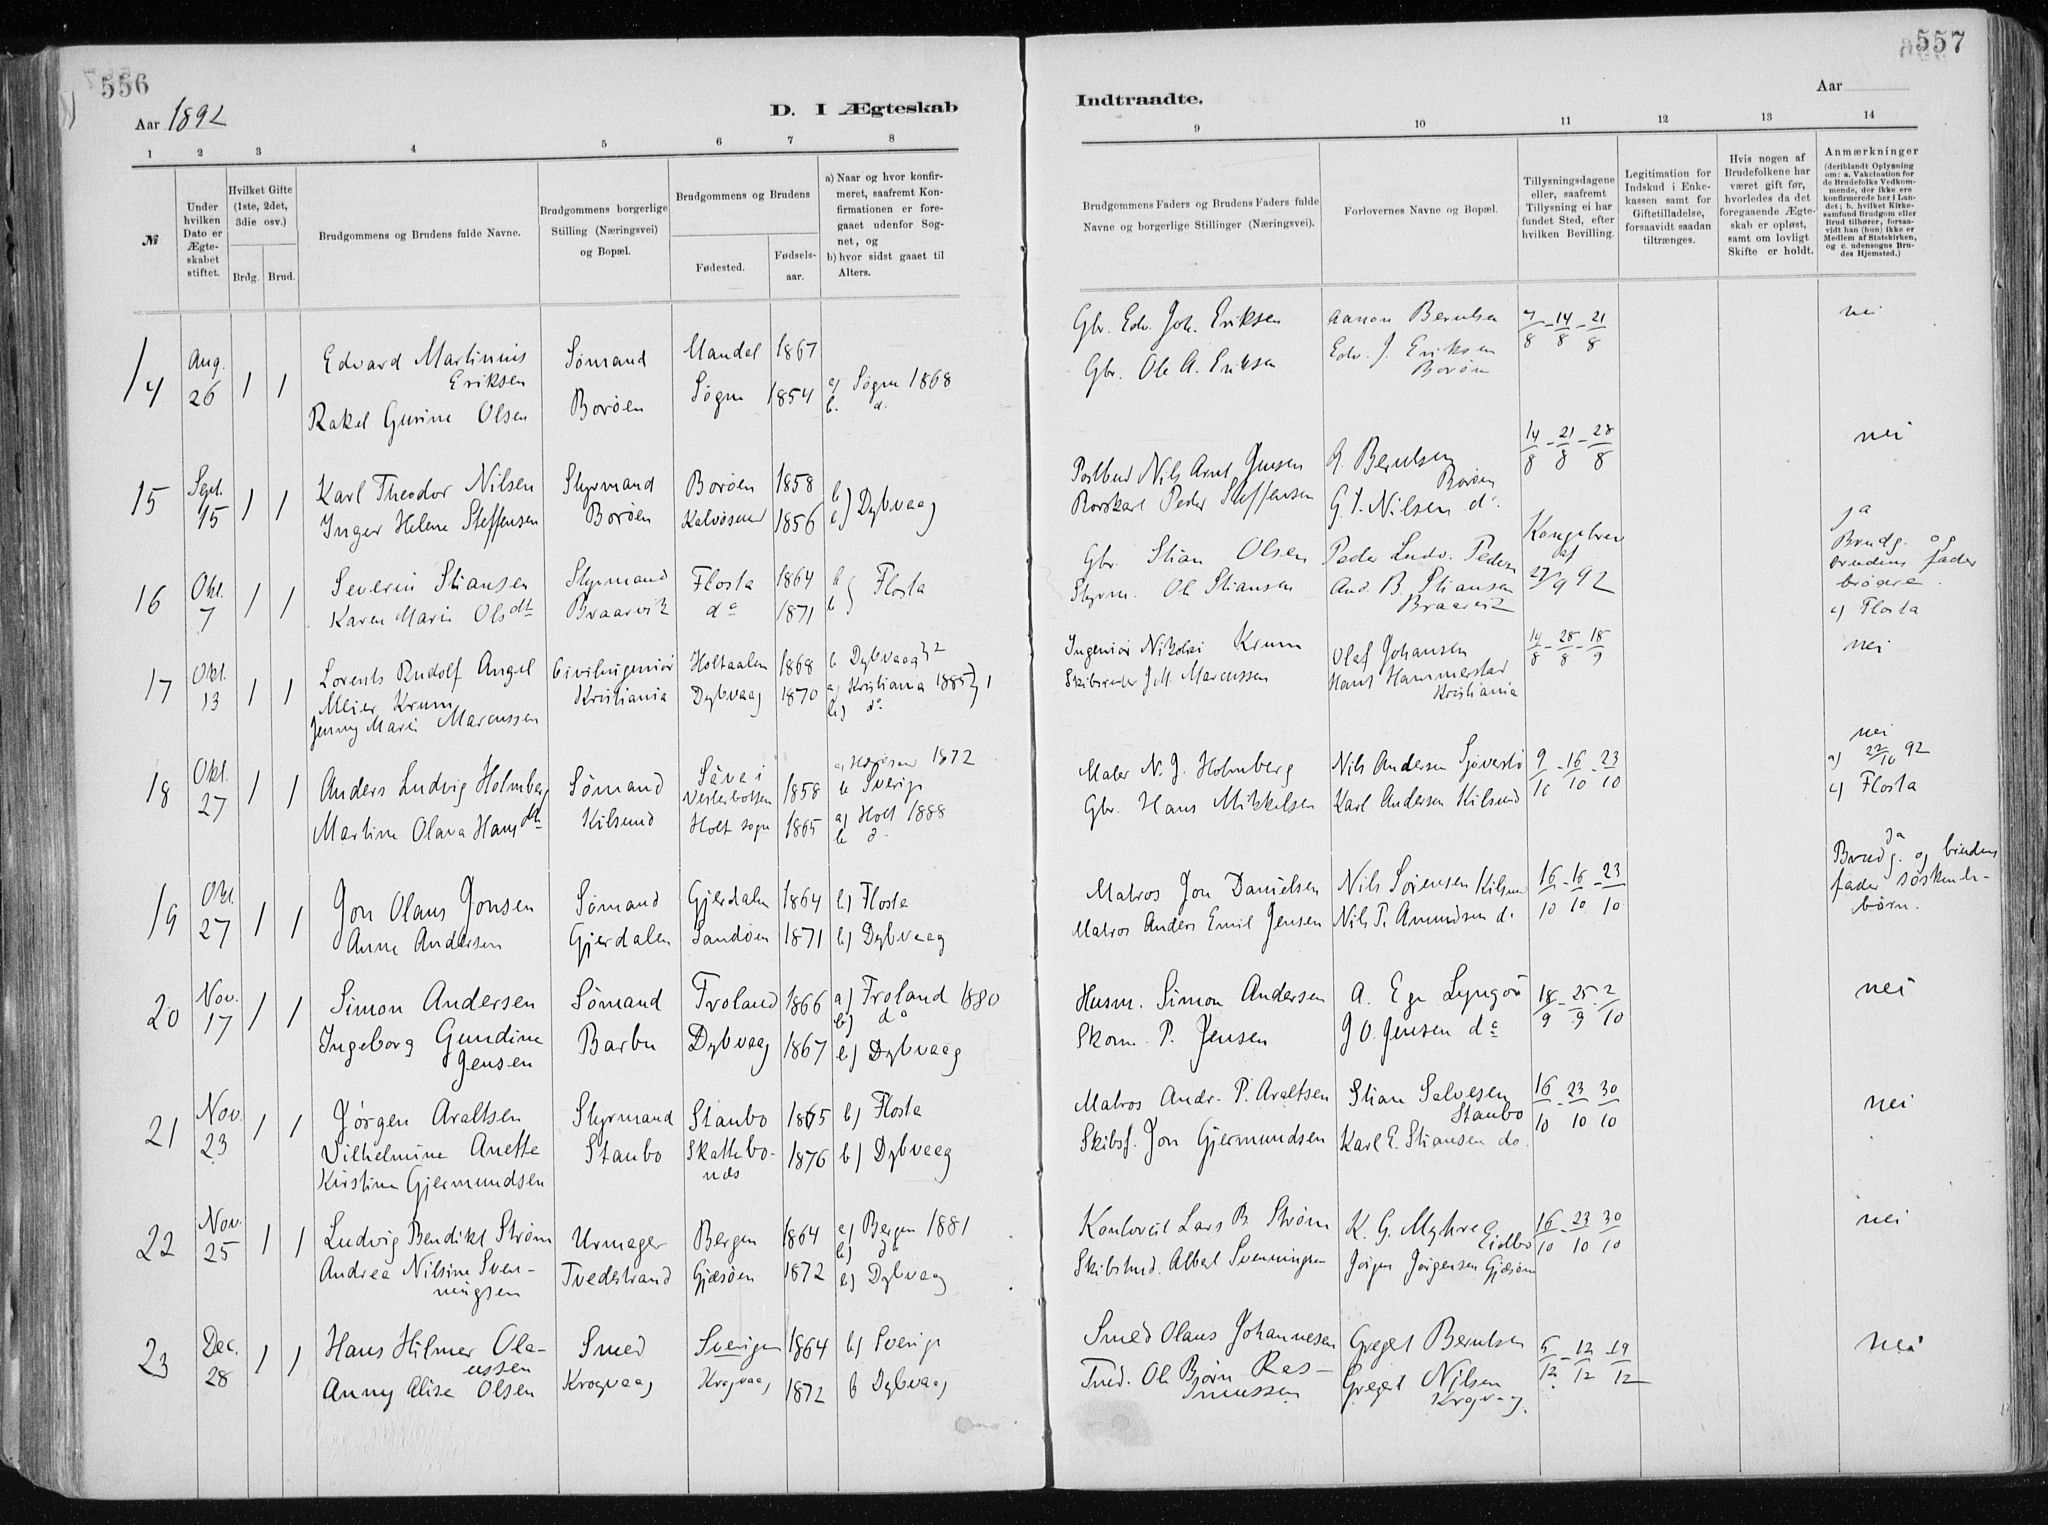 556
Aar 1892
D. I Ægteskab
1 2 3 4 5 6 7 8
№
Under hvilken Dato er Ægteskabet stiftet.
Hvilket Gifte (1ste, 2det, 3die osv.)
Brdg. Brud.
Brudgommens og Brudens fulde Navne.
Brudgommens borgerlige Stilling (Næringsvei) og Bopæl.
Brudgommens og Brudens
Fødested. Fødselsaar.
a) Naar og hvor konfirmeret, saafremt Konfirmationen er foregaaet udenfor Sognet, og
b) hvor sidst gaaet til Alters.
14 Aug. 26 1 1 Edvard Martinius Eriksen Sømand Mandal 1867
Rakel Gurine Olsen Borøen Søgne 1854 a) Søgne 1868
b. d.
15 Sept. 15 1 1 Karl Theodor Nilsen Styrmand Borøen 1858
Inger Helene Steffensen Borøen Kalvøsund 1856 b) Dybvaag
16 Okt. 7 1 1 Severin Stiansen Styrmand Flosta 1864 b
Karen Marie Olsdt Braarvik do 1871 b Flosta
17 Okt. 13 1 1 Lorents Rudolf Angel Meier Krum Civilingeniør Holtaalen 1868 b Dybvaag 2
Jenny Marie Marcussen Kristiania Dybvaag 1870 a) Kristiania 1885 1
b) do
18 Okt. 27 1 1 Anders Ludvig Holmberg Sømand Sävei Vesterbotten 1858 1872
b Sverige
Martine Olava Hansdt Kilsund Holt sogn 1865 a) Holt 1888
b d.
19 Okt. 27 1 1 Jon Olaus Jonsen Sømand Gjerdalen 1864 b) Flosta
Anne Andersen Gjerdalen Sandøen 1871 b) Dybvaag
20 Nov. 17 1 1 Simon Andersen Sømand Froland 1866 a) Froland 1880
b) do
Ingeborg Gundine Jensen Barbu Dybvaag 1867 b) Dybvaag
21 Nov. 23 1 1 Jørgen Araltsen Styrmand Staubo 1865 b) Flosta
Vilhelmine Anette Kristine Gjermundsen Staubo Skattebonæs 1876 b) Dybvaag
22 Nov. 25 1 1 Ludvig Bendikt Strøm Urmager Bergen 1864 a) Bergen 1881
b) do
Andrea Nilsine Svenningsen Tvedestrand Gjesøen 1872 b) Dybvaag
23 Dec. 28 1 1 Hans Hilmer Olaussen Smed Sverige 1864 b) Sverige
Anny Alise Olsen Krogvaag Krogvaag 1872 b Dybvaag
557
Indtraadte.
Aar
9 10 11 12 13 14
Brudgommens Faders og Brudens Faders fulde Navne og borgerlige Stillinger (Næringsvei).
Forlovernes Navne og Bopæl.
Tillysningsdagene eller, saafremt Tillysning ei har fundet Sted, efter hvilken Bevilling.
Legitimation for Indskud i Enkekassen samt for Giftetilladelse, forsaavidt saadan tiltrænges.
Hvis nogen af Brudefolkene har været gift før, hvorledes da det foregaaende Ægteskab er opløst, samt om lovligt Skifte er holdt.
Anmærkninger (deriblandt Oplysning om: a. Vakcination for de Brudefolks Vedkommende, der ikke ere konfirmerede her i Landet; b. hvilket Kirkesamfund Brudgom eller Brud tilhører, forsaavidt han (hun) ikke er Medlem af Statskirken, og c. udensogns Brudes Hjemsted.)
Gbr. Edv. Joh. Eriksen Aanon Berntsen 7/8 - 14/8 - 21/8 nei
Gbr. Ole A. Eriksen Edv. J. Eriksen Borøen
Postbud Nils Arnt Jensen A. Berntsen Borøen 14/8 - 21/8 - 28/8 nei
Peder Steffensen G. T. Nilsen do.
Gbr. Stian Olsen Peder Ludv. Pedersen Kongebrev af 27/9 92 ja
Brudg. og brudens fader brødre.
Styrm. Ole Stiansen And. B. Stiansen Braarvik c) Flosta
Ingeniør Nikolai Krum Olaf Johansen 14/8 - 28/8 - 18/9 nei
Skibsreder J. M. Marcussen Hans Hammerstad Kristiania
Maler N. J. Holmberg Nils Andersen 9/10 - 16/10 - 23/10 nei
a) 22/10 92
Gbr. Hans Mikkelsen Karl Andersen Kilsund c) Flosta
Matros Jon Danielsen Nils Sørensen Kilsund 16/10 - 16/10 - 23/10 Ja
Brudg. og brudens fader søskendebørn.
Matros Anders Emil Jensen Nils P. Amundsen do
Husm. Simon Andersen A. Ege Lyngør 18/9 - 25/9 - 2/10 nei
Skom. P. Jensen J O. Jensen do
Matros Andr. P. Araltsen Stian Salvesen Staubo 16/10 - 23/10 30/10 nei
Skibsf. Jon Gjermundsen Karl E. Stiansen do.
Lars B. Strøm K. G. Myhre Eidbo 16/10 - 23/10 30/10 nei
Albert Svenningsen Jørgen Jørgensen Gjesøen
Smed Olaus Johannesen Greget Berntsen 5/12 - 12/12 - 19/12 nei
Ole Bjørn Rasmussen Greget Nilsen Krogvaag.